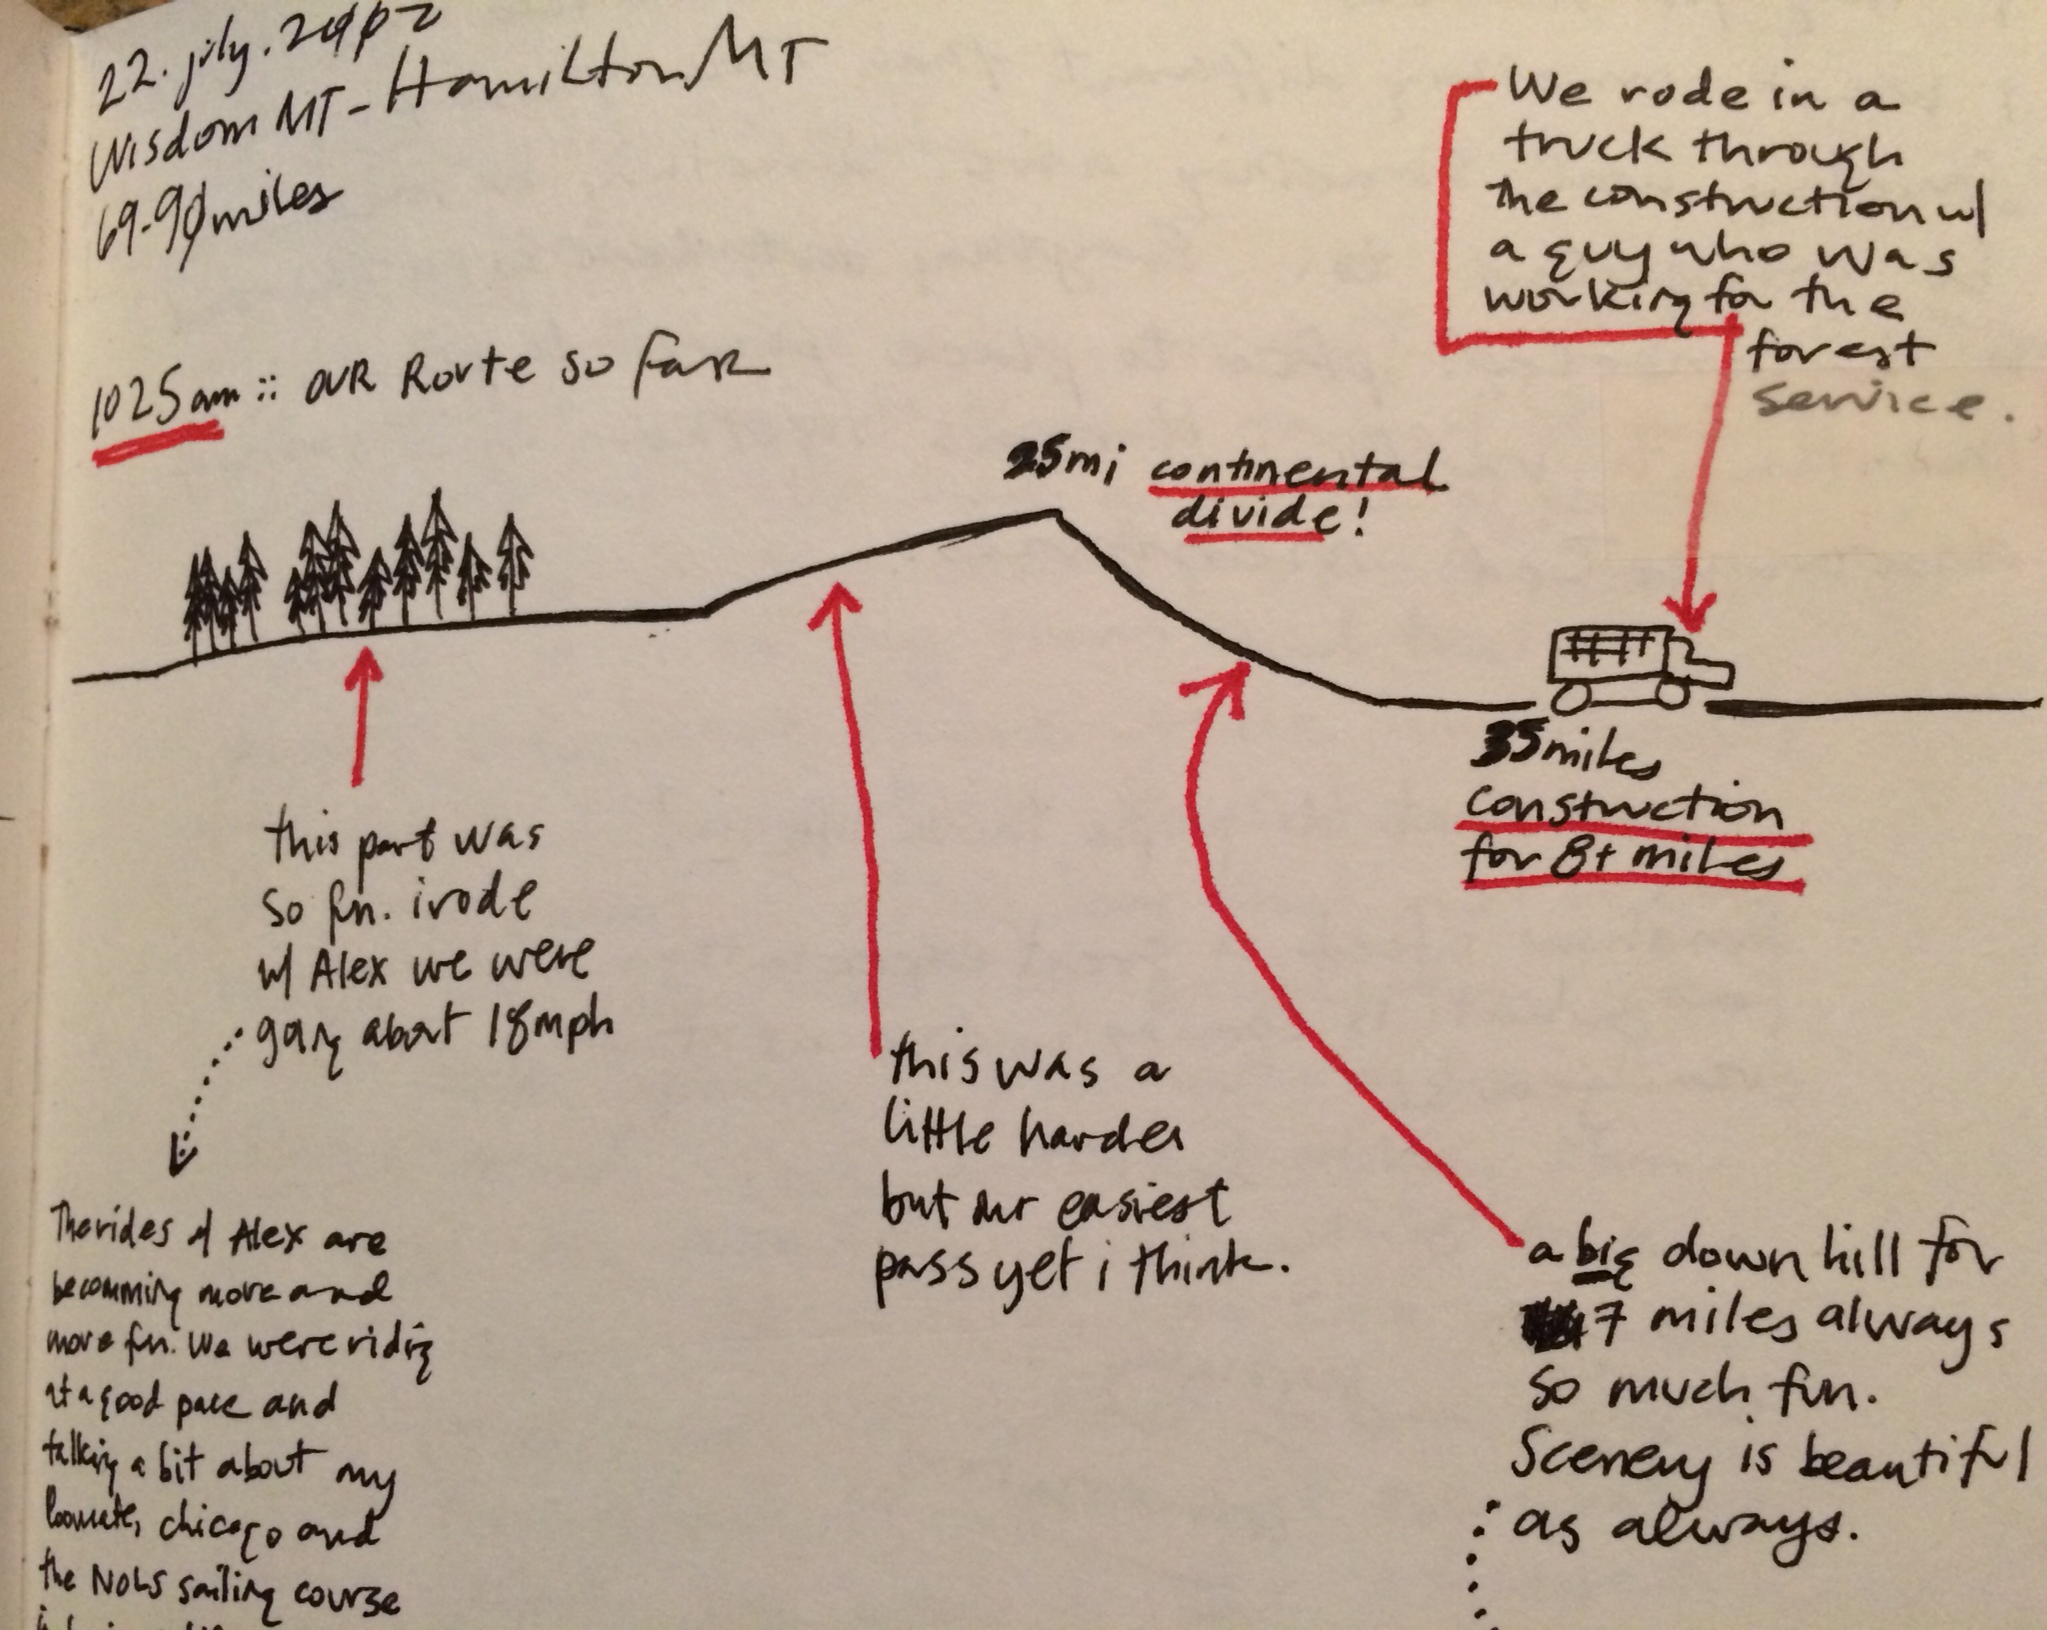 22. july. 2002
Wisdom MT - Hamilton MT
69-90 miles
1025am :: OUR Route so far
We rode in a
truck through
the construction w/
a guy who was
working for the
forest
service.
25mi continental
divide!
35miles
construction
for 8+ miles
this part was
so fun. i rode
w/ Alex we were
going about 18mph
this was a
little harder
but our easiest
pass yet i think.
a big down hill for
7 miles always
so much fun.
Scenery is beautiful
as always.
The rides w/ Alex are
becomming more and
more fun. We were riding
at a good pace and
talking a bit about my
chicago and
the NOLS sailing course